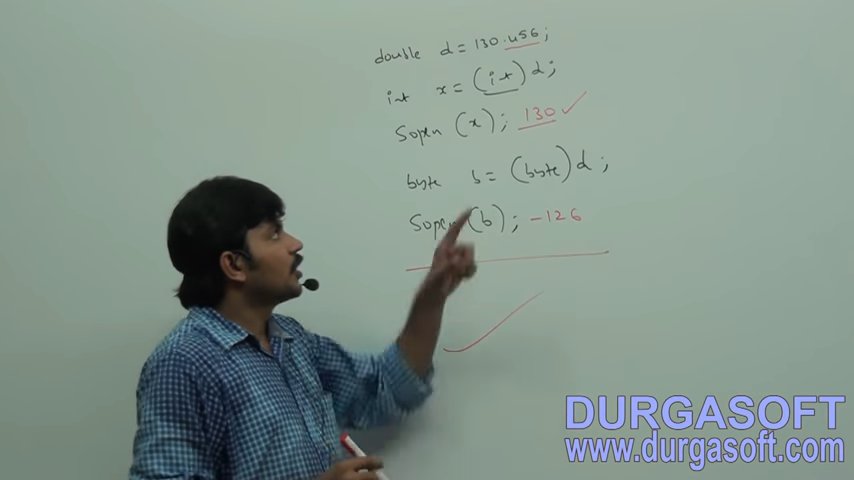 double d = 130.456;
int x = (int) d;
Sopln (x); 130
byte b = (byte) d;
Sopln (b); -126
DURGASOFT
www.durgasoft.com